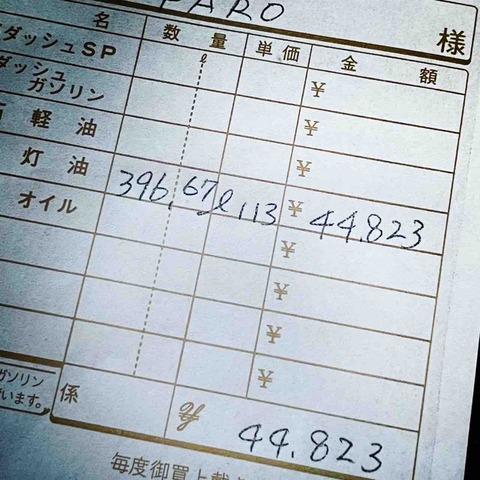 PARO 様
名 数量 単価 金額
ダッシュSP ℓ ¥
ダッシュガソリン ¥
軽油 ¥
灯油 396.67ℓ 113 ¥ 44.823
オイル ¥
¥
¥
¥
ガソリン
係 44.823
います。
毎度御買上